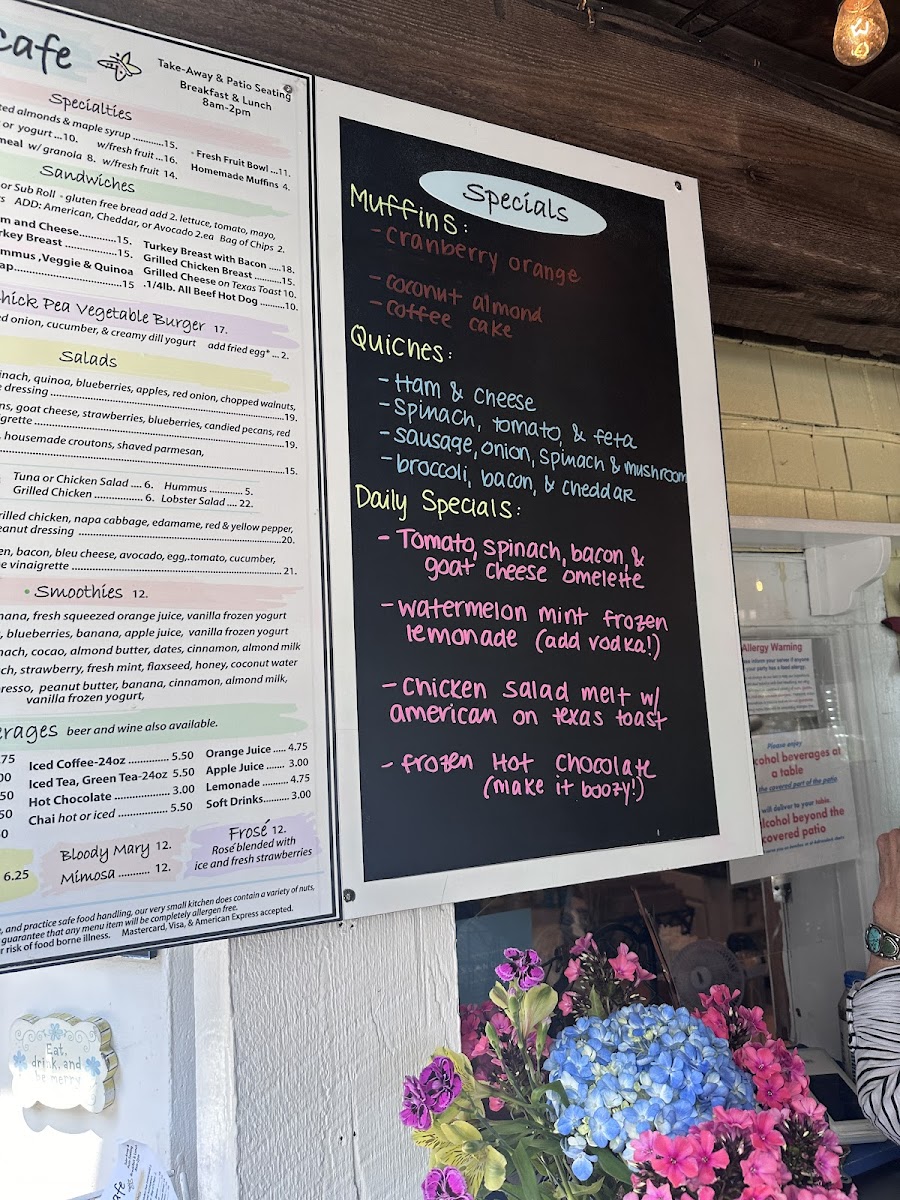 cafe
Take-Away & Patio Seating
Breakfast & Lunch
8am-2pm
Specialties
almonds & maple syrup ............15.
or yogurt ...10. w/fresh fruit ...16.
w/ granola 8. w/fresh fruit 14.
- Fresh Fruit Bowl ...11.
Homemade Muffins 4.
Sandwiches
or Sub Roll - gluten free bread add 2. lettuce, tomato, mayo,
ADD: American, Cheddar, or Avocado 2.ea Bag of Chips 2.
and Cheese............15.
Breast ................15.
,Veggie & Quinoa
........................15
Turkey Breast with Bacon .....18.
Grilled Chicken Breast .........15.
Grilled Cheese on Texas Toast 10.
.1/4lb. All Beef Hot Dog ..........10.
Chick Pea Vegetable Burger 17.
onion, cucumber, & creamy dill yogurt add fried egg* ... 2.
Salads
quinoa, blueberries, apples, red onion, chopped walnuts,
dressing ...............19.
goat cheese, strawberries, blueberries, candied pecans, red
...............19.
housemade croutons, shaved parmesan,
...............15.
Tuna or Chicken Salad .... 6. Hummus ............ 5.
Grilled Chicken ............... 6. Lobster Salad .... 22.
chicken, napa cabbage, edamame, red & yellow pepper,
dressing ...............20.
bacon, bleu cheese, avocado, egg,.tomato, cucumber,
vinaigrette ............... 21.
• Smoothies 12.
fresh squeezed orange juice, vanilla frozen yogurt
blueberries, banana, apple juice, vanilla frozen yogurt
cocao, almond butter, dates, cinnamon, almond milk
strawberry, fresh mint, flaxseed, honey, coconut water
peanut butter, banana, cinnamon, almond milk,
vanilla frozen yogurt,
beer and wine also available.
Iced Coffee-24oz ............... 5.50
Iced Tea, Green Tea-24oz 5.50
Hot Chocolate .................. 3.00
Chai hot or iced ................. 5.50
Orange Juice ..... 4.75
Apple Juice ....... 3.00
Lemonade ......... 4.75
Soft Drinks......... 3.00
6.25
Bloody Mary 12.
Mimosa ........... 12.
Frosé 12.
Rosé blended with
ice and fresh strawberries
and practice safe food handling, our very small kitchen does contain a variety of nuts,
guarantee that any menu item will be completely allergen free.
risk of food borne illness. Mastercard, Visa, & American Express accepted.
Specials
Muffins:
- Cranberry orange
- coconut almond
- coffee cake
Quiches:
- Ham & cheese
- Spinach, tomato, & feta
- sausage, onion, spinach & mushroom
- broccoli, bacon, & cheddar
Daily Specials:
- Tomato, spinach, bacon, &
goat cheese omelette
- watermelon mint frozen
lemonade (add vodka!)
- chicken salad melt w/
american on texas toast
- frozen Hot chocolate
(make it boozy!)
Allergy Warning
Please enjoy
alcohol beverages at
a table
the covered part of the patio
will deliver to your table.
alcohol beyond the
covered patio
Eat,
drink, and
be merry